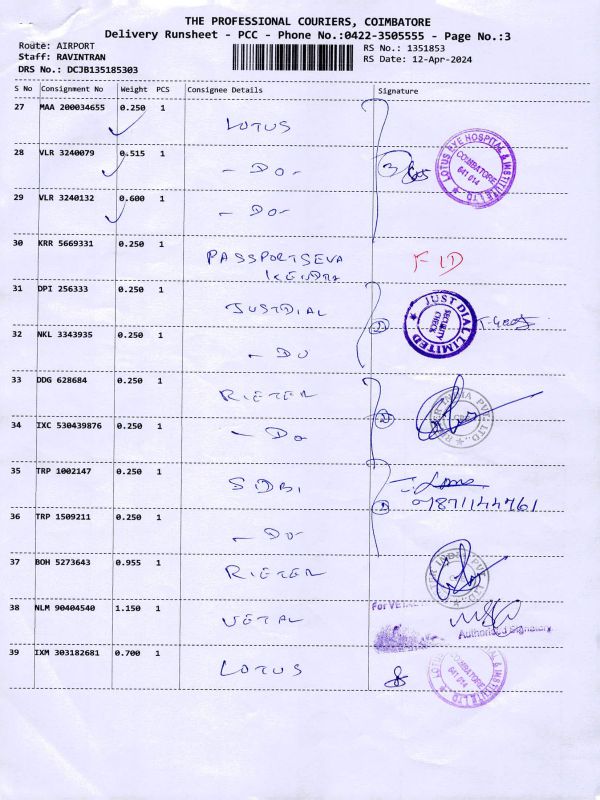 THE PROFESSIONAL COURIERS, COIMBATORE
Delivery Runsheet - PCC - Phone No.:0422-3505555 - Page No.:3
Route: AIRPORT
RS No.: 1351853
Staff: RAVINTRAN
RS Date: 12-Apr-2024
DRS No.: DCJB135185303
S No Consignment No Weight PCS Consignee Details Signature
27 MAA 200034655 0.250 1 LOTUS
28 VLR 3240079 0.515 1 - DO -
LOTUS EYE HOSPITAL & INSTITUTE LTD.
COIMBATORE
641 014
29 VLR 3240132 0.600 1 - DO -
30 KRR 5669331 0.250 1 PASSPORTSEVA KENDRA FID
31 DPI 256333 0.250 1 JUSTDIAL
JUST DIAL LIMITED
SECURITY CHECK
32 NKL 3343935 0.250 1 - DO
33 DDG 628684 0.250 1 RIETER
34 IXC 530439876 0.250 1 - DO
35 TRP 1002147 0.250 1 SIDBI
36 TRP 1509211 0.250 1 - DO -
37 BOH 5273643 0.955 1 RIETER
38 NLM 90404540 1.150 1 VETAL
For VETAL
Authorised Signatory
39 IXM 303182681 0.700 1 LOTUS
COIMBATORE
641 014